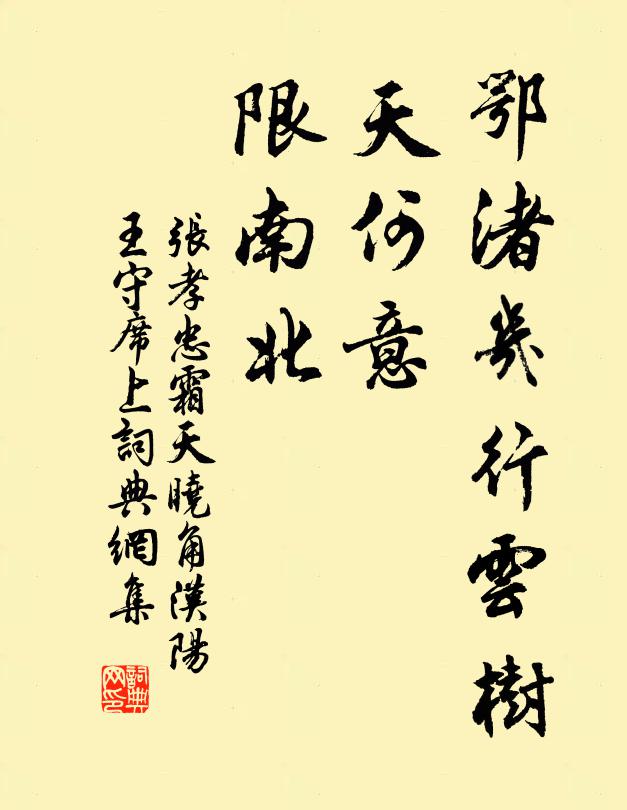 鄂渚幾行雲樹
天何意
限南北
張孝忠霜天曉角漢陽
王守席上詞典網集
詞典
网印